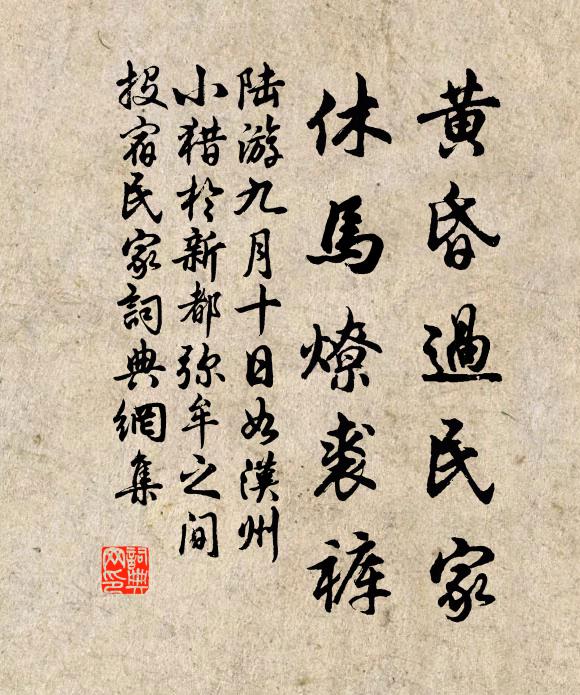 黄昏過民家
休馬燎裘裤
陆游九月十日如漢州
小猎於新都弥牟之间
投宿民家詞典網集
詞典
网印